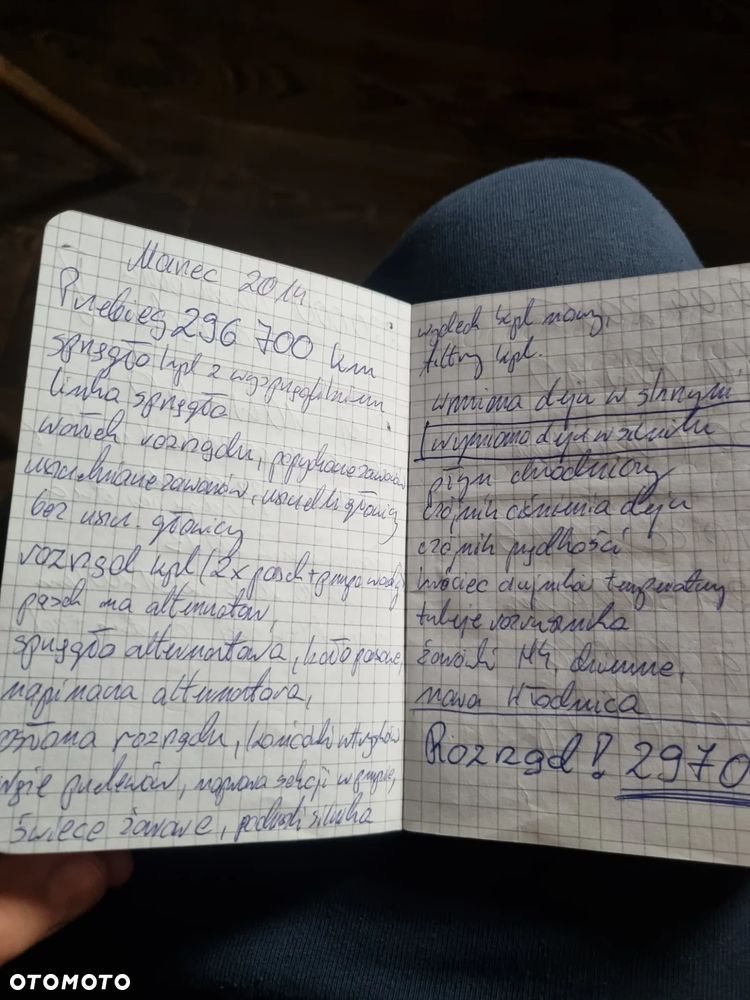 Marzec 2014
Przebieg 296 700 km
sprzęgło kpl z wysprzęglikiem
linka sprzęgła
wałek rozrządu, popychacze zaworów
uszczelniacze zaworów, uszczelki głowicy
bez uszcz. głowicy
rozrząd kpl (2x pasek + pompa wody)
pasek na alternator,
sprzęgło alternatora, koło pasowe,
napinacz alternatora,
osłona rozrządu, końcówki wtrysków
węże paliwowe, naprawa sekcji w pompie,
świece żarowe, poduszki silnika
wydech kpl nowy,
filtry kpl.
wymiana oleju w skrzyni
wymiana oleju w silniku
płyn chłodniczy
czujnik ciśnienia oleju
czujnik prędkości
króciec czujnika temperatury
tuleje rozrusznika
żarówki H4, zimowe,
nowa chłodnica
Rozrząd! 2970
OTOMOTO